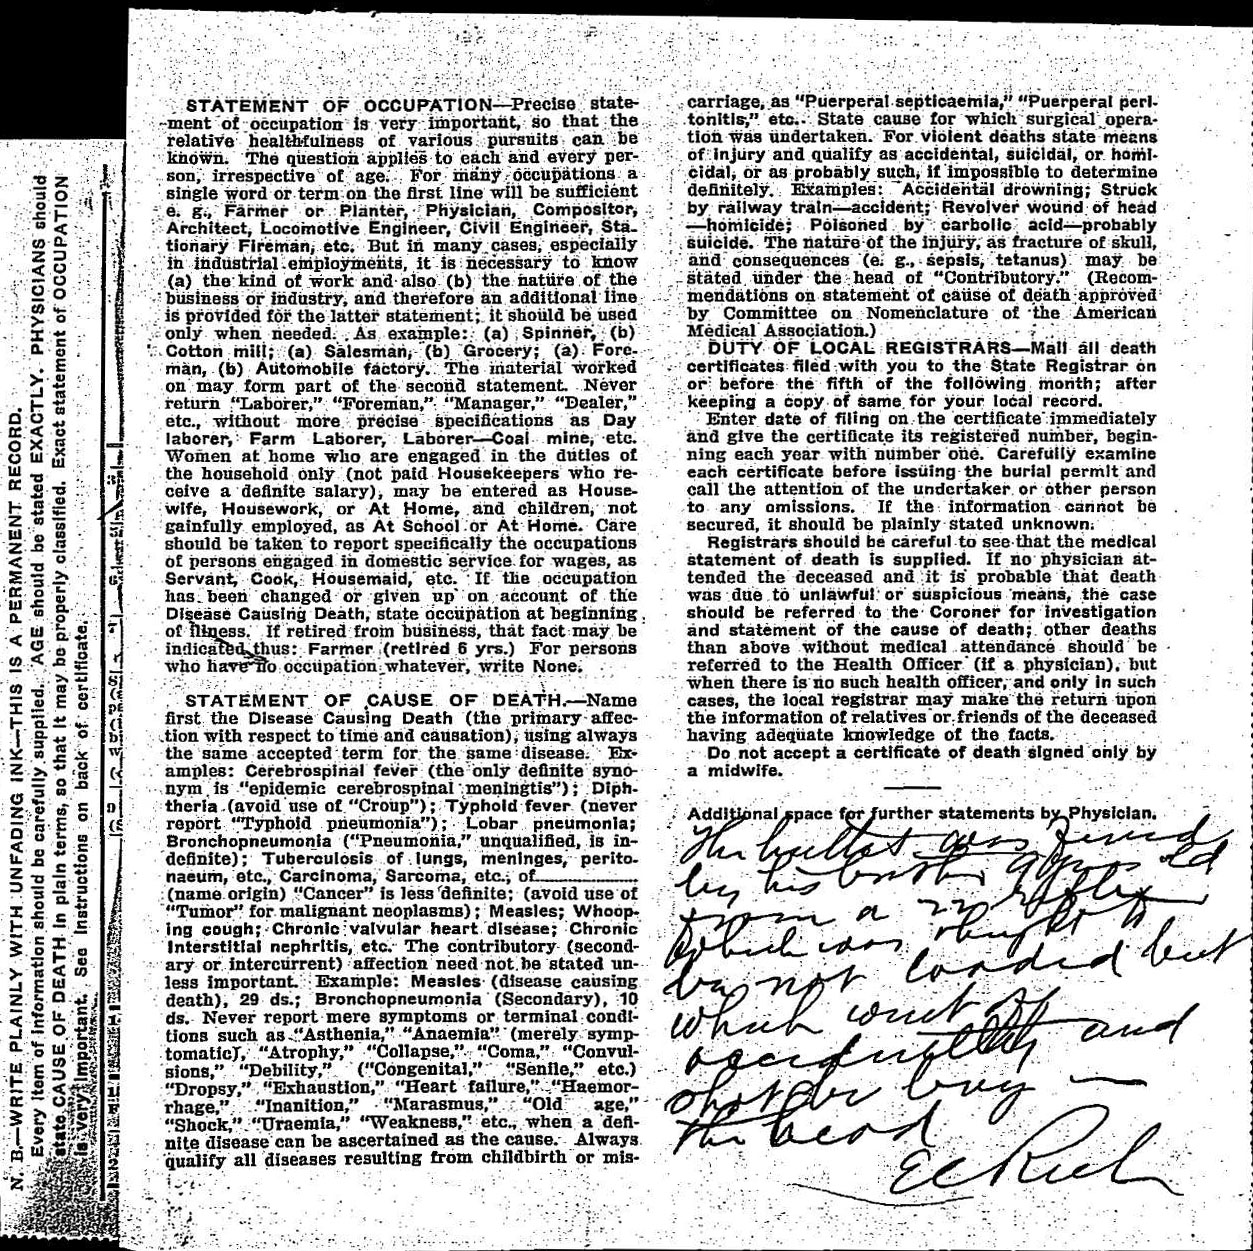 N. B.—WRITE PLAINLY WITH UNFADING INK—THIS IS A PERMANENT RECORD.
Every item of information should be carefully supplied. AGE should be stated EXACTLY. PHYSICIANS should
state CAUSE OF DEATH in plain terms, so that it may be properly classified. Exact statement of OCCUPATION
is very important. See instructions on back of certificate.
STATEMENT OF OCCUPATION—Precise state-
ment of occupation is very important, so that the
relative healthfulness of various pursuits can be
known. The question applies to each and every per-
son, irrespective of age. For many occupations a
single word or term on the first line will be sufficient
e. g., Farmer or Planter, Physician, Compositor,
Architect, Locomotive Engineer, Civil Engineer, Sta-
tionary Fireman, etc. But in many cases, especially
in industrial employments, it is necessary to know
(a) the kind of work and also (b) the nature of the
business or industry, and therefore an additional line
is provided for the latter statement; it should be used
only when needed. As example: (a) Spinner, (b)
Cotton mill; (a) Salesman, (b) Grocery; (a) Fore-
man, (b) Automobile factory. The material worked
on may form part of the second statement. Never
return "Laborer," "Foreman," "Manager," "Dealer,"
etc., without more precise specifications as Day
laborer, Farm Laborer, Laborer—Coal mine, etc.
Women at home who are engaged in the duties of
the household only (not paid Housekeepers who re-
ceive a definite salary), may be entered as House-
wife, Housework, or At Home, and children, not
gainfully employed, as At School or At Home. Care
should be taken to report specifically the occupations
of persons engaged in domestic service for wages, as
Servant, Cook, Housemaid, etc. If the occupation
has been changed or given up on account of the
Disease Causing Death, state occupation at beginning
of illness. If retired from business, that fact may be
indicated thus: Farmer (retired 6 yrs.) For persons
who have no occupation whatever, write None.
STATEMENT OF CAUSE OF DEATH.—Name
first the Disease Causing Death (the primary affec-
tion with respect to time and causation), using always
the same accepted term for the same disease. Ex-
amples: Cerebrospinal fever (the only definite syno-
nym is "epidemic cerebrospinal meningtis"); Diph-
theria (avoid use of "Croup"); Typhoid fever (never
report "Typhoid pneumonia"); Lobar pneumonia;
Bronchopneumonia ("Pneumonia," unqualified, is in-
definite); Tuberculosis of lungs, meninges, perito-
naeum, etc., Carcinoma, Sarcoma, etc., of
(name origin) "Cancer" is less definite; (avoid use of
"Tumor" for malignant neoplasms); Measles; Whoop-
ing cough; Chronic valvular heart disease; Chronic
interstitial nephritis, etc. The contributory (second-
ary or intercurrent) affection need not be stated un-
less important. Example: Measles (disease causing
death), 29 ds.; Bronchopneumonia (Secondary), 10
ds. Never report mere symptoms or terminal condi-
tions such as "Asthenia," "Anaemia" (merely symp-
tomatic), "Atrophy," "Collapse," "Coma," "Convul-
sions," "Debility," ("Congenital," "Senile," etc.)
"Dropsy," "Exhaustion," "Heart failure," "Haemor-
rhage," "Inanition," "Marasmus," "Old age,"
"Shock," "Uraemia," "Weakness," etc., when a defi-
nite disease can be ascertained as the cause. Always
qualify all diseases resulting from childbirth or mis-
carriage, as "Puerperal septicaemia," "Puerperal peri-
tonitis," etc. State cause for which surgical opera-
tion was undertaken. For violent deaths state means
of injury and qualify as accidental, suicidal, or homi-
cidal, or as probably such, if impossible to determine
definitely. Examples: Accidental drowning; Struck
by railway train—accident; Revolver wound of head
—homicide; Poisoned by carbolic acid—probably
suicide. The nature of the injury, as fracture of skull,
and consequences (e. g., sepsis, tetanus) may be
stated under the head of "Contributory." (Recom-
mendations on statement of cause of death approved
by Committee on Nomenclature of the American
Medical Association.)
DUTY OF LOCAL REGISTRARS—Mail all death
certificates filed with you to the State Registrar on
or before the fifth of the following month; after
keeping a copy of same for your local record.
Enter date of filing on the certificate immediately
and give the certificate its registered number, begin-
ning each year with number one. Carefully examine
each certificate before issuing the burial permit and
call the attention of the undertaker or other person
to any omissions. If the information cannot be
secured, it should be plainly stated unknown.
Registrars should be careful to see that the medical
statement of death is supplied. If no physician at-
tended the deceased and it is probable that death
was due to unlawful or suspicious means, the case
should be referred to the Coroner for investigation
and statement of the cause of death; other deaths
than above without medical attendance should be
referred to the Health Officer (if a physician), but
when there is no such health officer, and only in such
cases, the local registrar may make the return upon
the information of relatives or friends of the deceased
having adequate knowledge of the facts.
Do not accept a certificate of death signed only by
a midwife.
Additional space for further statements by Physician.
The bullet was fired
by his brother 9 yrs old
from a 22 rifle
which was thought to
be not loaded but
which went off
accidentally and
shot the boy in
the head
EC Rich